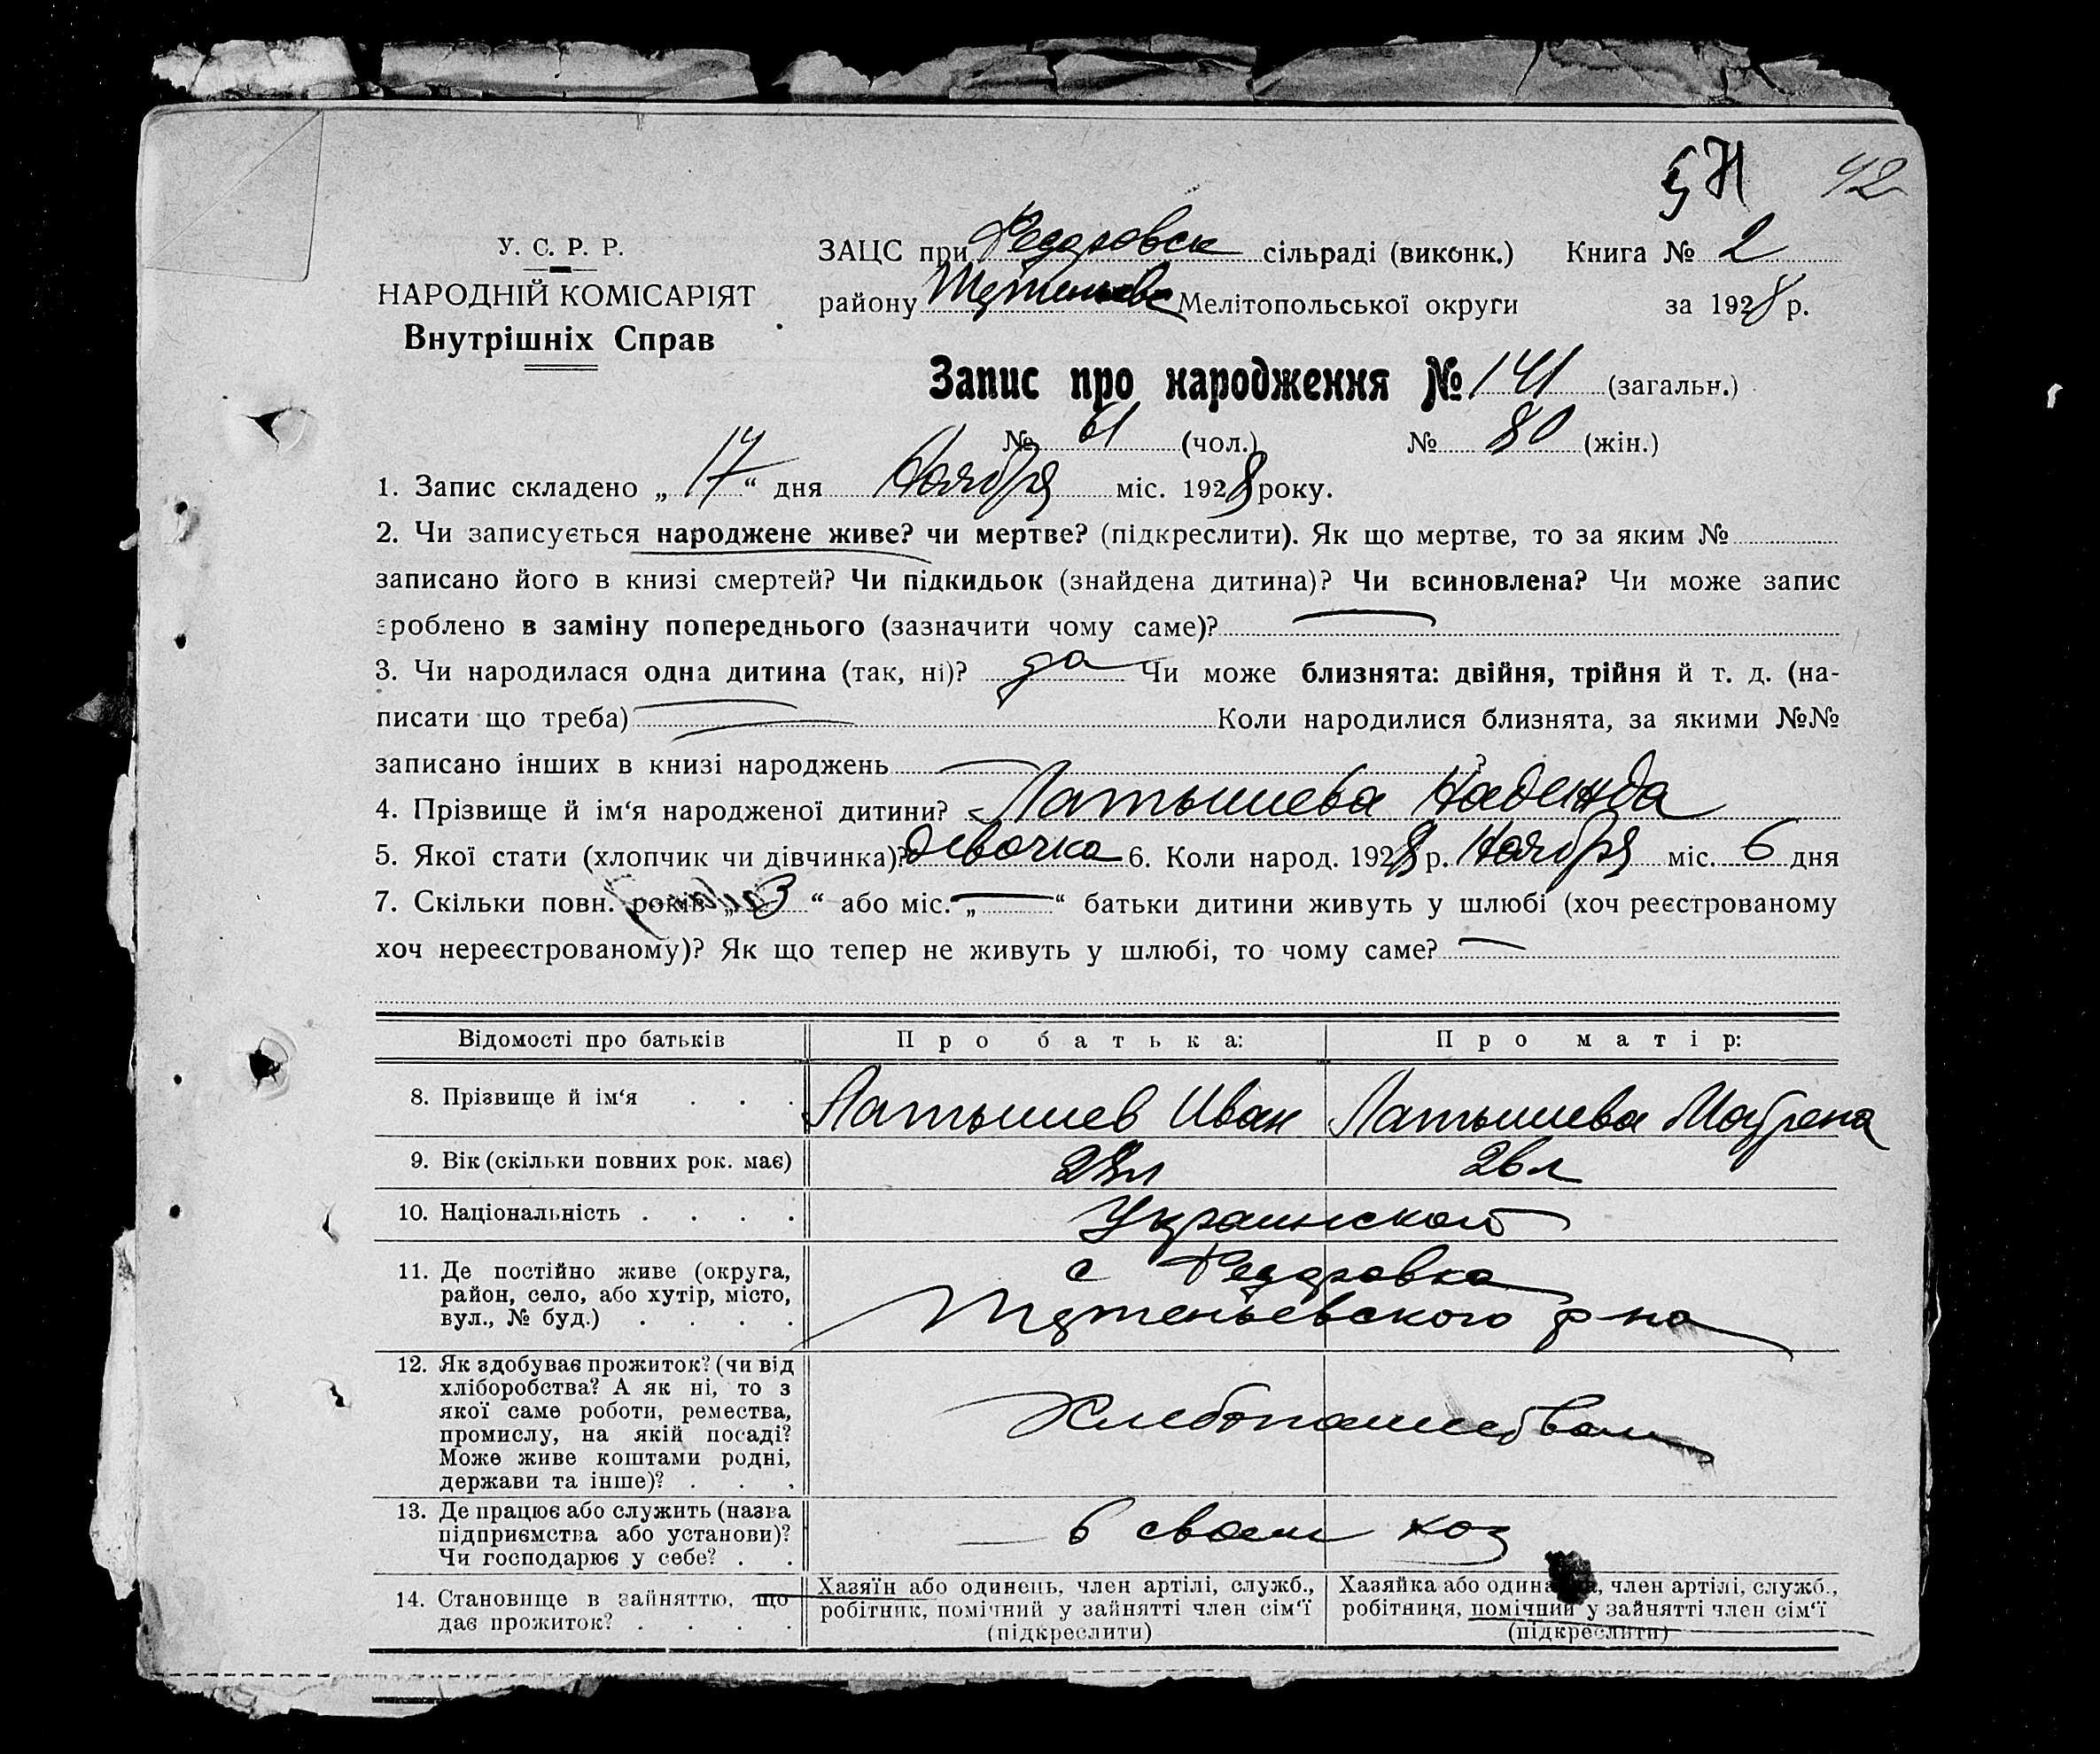 42
У. С. Р. Р.
НАРОДНІЙ КОМІСАРІЯТ
Внутрішніх Справ
ЗАЦС при Федоровск сільраді (виконк.) Книга № 2
району Мелітопольської округи за 1928 р.
Запис про народження № 141 (загальн.)
№ 61 (чол.) № 80 (жін.)
1. Запис складено „ 17 “ дня Ноября міс. 1928 року.
2. Чи записується народжене живе? чи мертве? (підкреслити). Як що мертве, то за яким №
записано його в книзі смертей? Чи підкидьок (знайдена дитина)? Чи всиновлена? Чи може запис
зроблено в заміну попереднього (зазначити чому саме)?
3. Чи народилася одна дитина (так, ні)? да Чи може близнята: двійня, трійня й т. д. (на-
писати що треба) Коли народилися близнята, за якими №№
записано інших в книзі народжень ?
4. Прізвище й ім‘я народженої дитини? Латышева Надежда
5. Якої стати (хлопчик чи дівчинка)? девочка 6. Коли народ. 1928 р. Ноября міс. 6 дня
7. Скільки повн. років „ 3 “ або міс. „ “ батьки дитини живуть у шлюбі (хоч реєстрованому
хоч нереєстрованому)? Як що тепер не живуть у шлюбі, то чому саме?
Відомості про батьків Про батька: Про матір:
8. Прізвище й ім‘я . . . Латышев Иван Латышева Маврена
9. Вік (скільки повних рок. має) 26 л
10. Національність . . . . Украинской
11. Де постійно живе (округа,
район, село, або хутір, місто,
вул., № буд.) . . . .
с Федоровка
р-на
12. Як здобуває прожиток? (чи від
хліборобства? А як ні, то з
якої саме роботи, ремества,
промислу, на якій посаді?
Може живе коштами родні,
держави та інше)? . . .
Хлебопашеством
13. Де працює або служить (назва
підприємства або установи)?
Чи господарює у себе? . .
в своем хоз
14. Становище в зайняттю, що
дає прожиток? . . . .
Хазяїн або одинець, член артілі, служб.,
робітник, помічний у зайнятті член сім‘ї
(підкреслити)
Хазяйка або одиначка, член артілі, служб.,
робітниця, помічний у зайнятті член сім‘ї
(підкреслити)